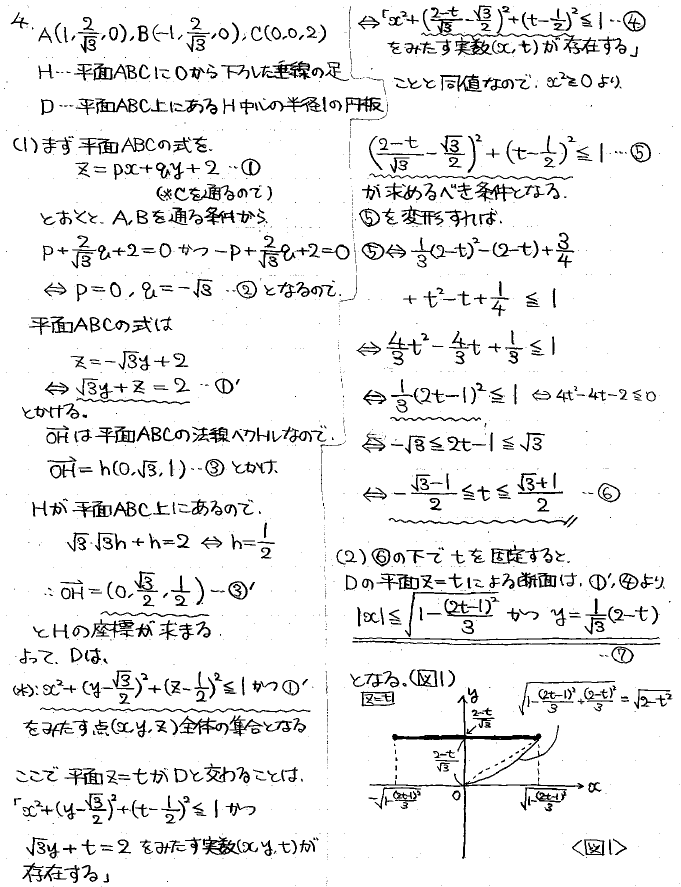 4.
A(1, 2/√3, 0), B(-1, 2/√3, 0), C(0, 0, 2)
H…平面ABCにOから下ろした垂線の足
D…平面ABC上にあるH中心の半径1の円板
(1) まず平面ABCの式を.
z = px + qy + 2 …①
(※Cを通るので)
とおくと、A, Bを通る条件から
p + 2/√3 q + 2 = 0 かつ -p + 2/√3 q + 2 = 0
⇔ p = 0, q = -√3 …② となるので.
平面ABCの式は
z = -√3y + 2
⇔ √3y + z = 2 …①'
とかける。
OH→は平面ABCの法線ベクトルなので.
OH→ = h(0, √3, 1) …③ とかけ
Hが平面ABC上にあるので.
√3・√3h + h = 2 ⇔ h = 1/2
∴ OH→ = (0, √3/2, 1/2) …③'
とHの座標が求まる
よって、Dは、
(*): x² + (y - √3/2)² + (z - 1/2)² ≦ 1 かつ ①'
をみたす点(x, y, z)全体の集合となる
ここで平面z = tがDと交わることは.
「x² + (y - √3/2)² + (t - 1/2)² ≦ 1 かつ
√3y + t = 2 をみたす実数(x, y, t)が
存在する」
⇔「x² + ((2-t)/√3 - √3/2)² + (t - 1/2)² ≦ 1 …④
をみたす実数(x, t)が存在する」
ことと同値なので. x² ≧ 0 より
((2-t)/√3 - √3/2)² + (t - 1/2)² ≦ 1 …⑤
が求めるべき条件となる.
⑤を変形すれば.
⑤ ⇔ 1/3(2-t)² - (2-t) + 3/4
+ t² - t + 1/4 ≦ 1
⇔ 4/3 t² - 4/3 t + 1/3 ≦ 1
⇔ 1/3(2t-1)² ≦ 1 ⇔ 4t² - 4t - 2 ≦ 0
⇔ -√3 ≦ 2t-1 ≦ √3
⇔ -(√3-1)/2 ≦ t ≦ (√3+1)/2 …⑥
(2) ⑥の下でtを固定すると.
Dの平面z = tによる断面は、①', ④より
|x| ≦ √(1 - (2t-1)²/3) かつ y = 1/√3 (2-t)
…⑦
となる.(図1)
z=t
y
√(1 - (2t-1)²/3 + (2-t)²/3) = √(2-t²)
(2-t)/√3
(2-t)/√3
O
x
-√(1 - (2t-1)²/3)
√(1 - (2t-1)²/3)
<図1>